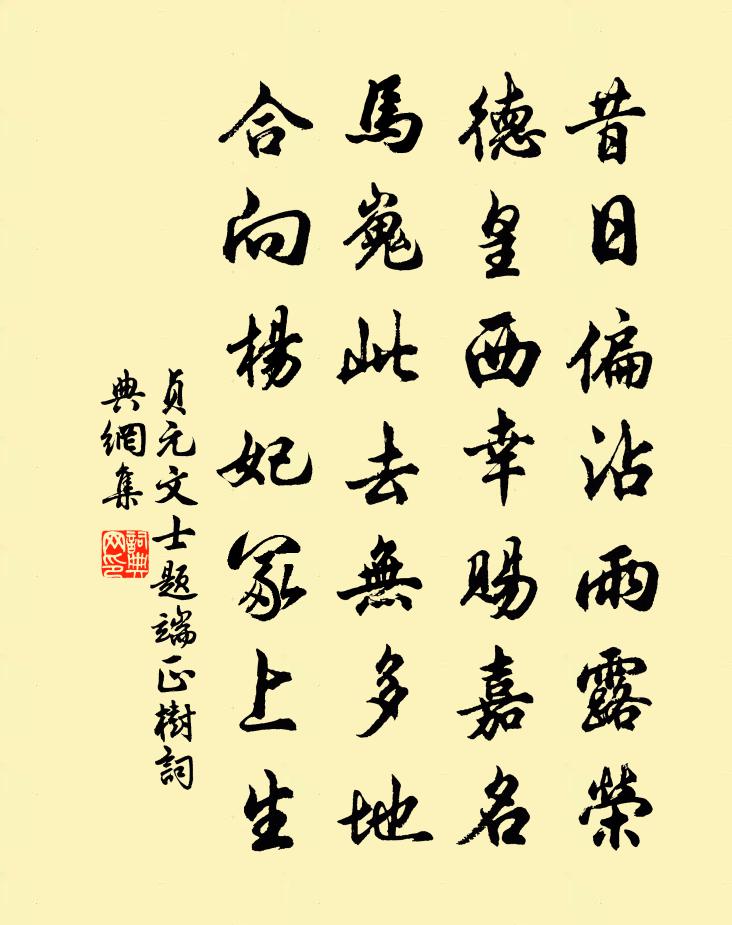 昔日偏沾雨露榮
德皇西幸賜嘉名
馬嵬此去無多地
合向楊妃冢上生
貞元文士題端正樹詞
典網集
詞典网印